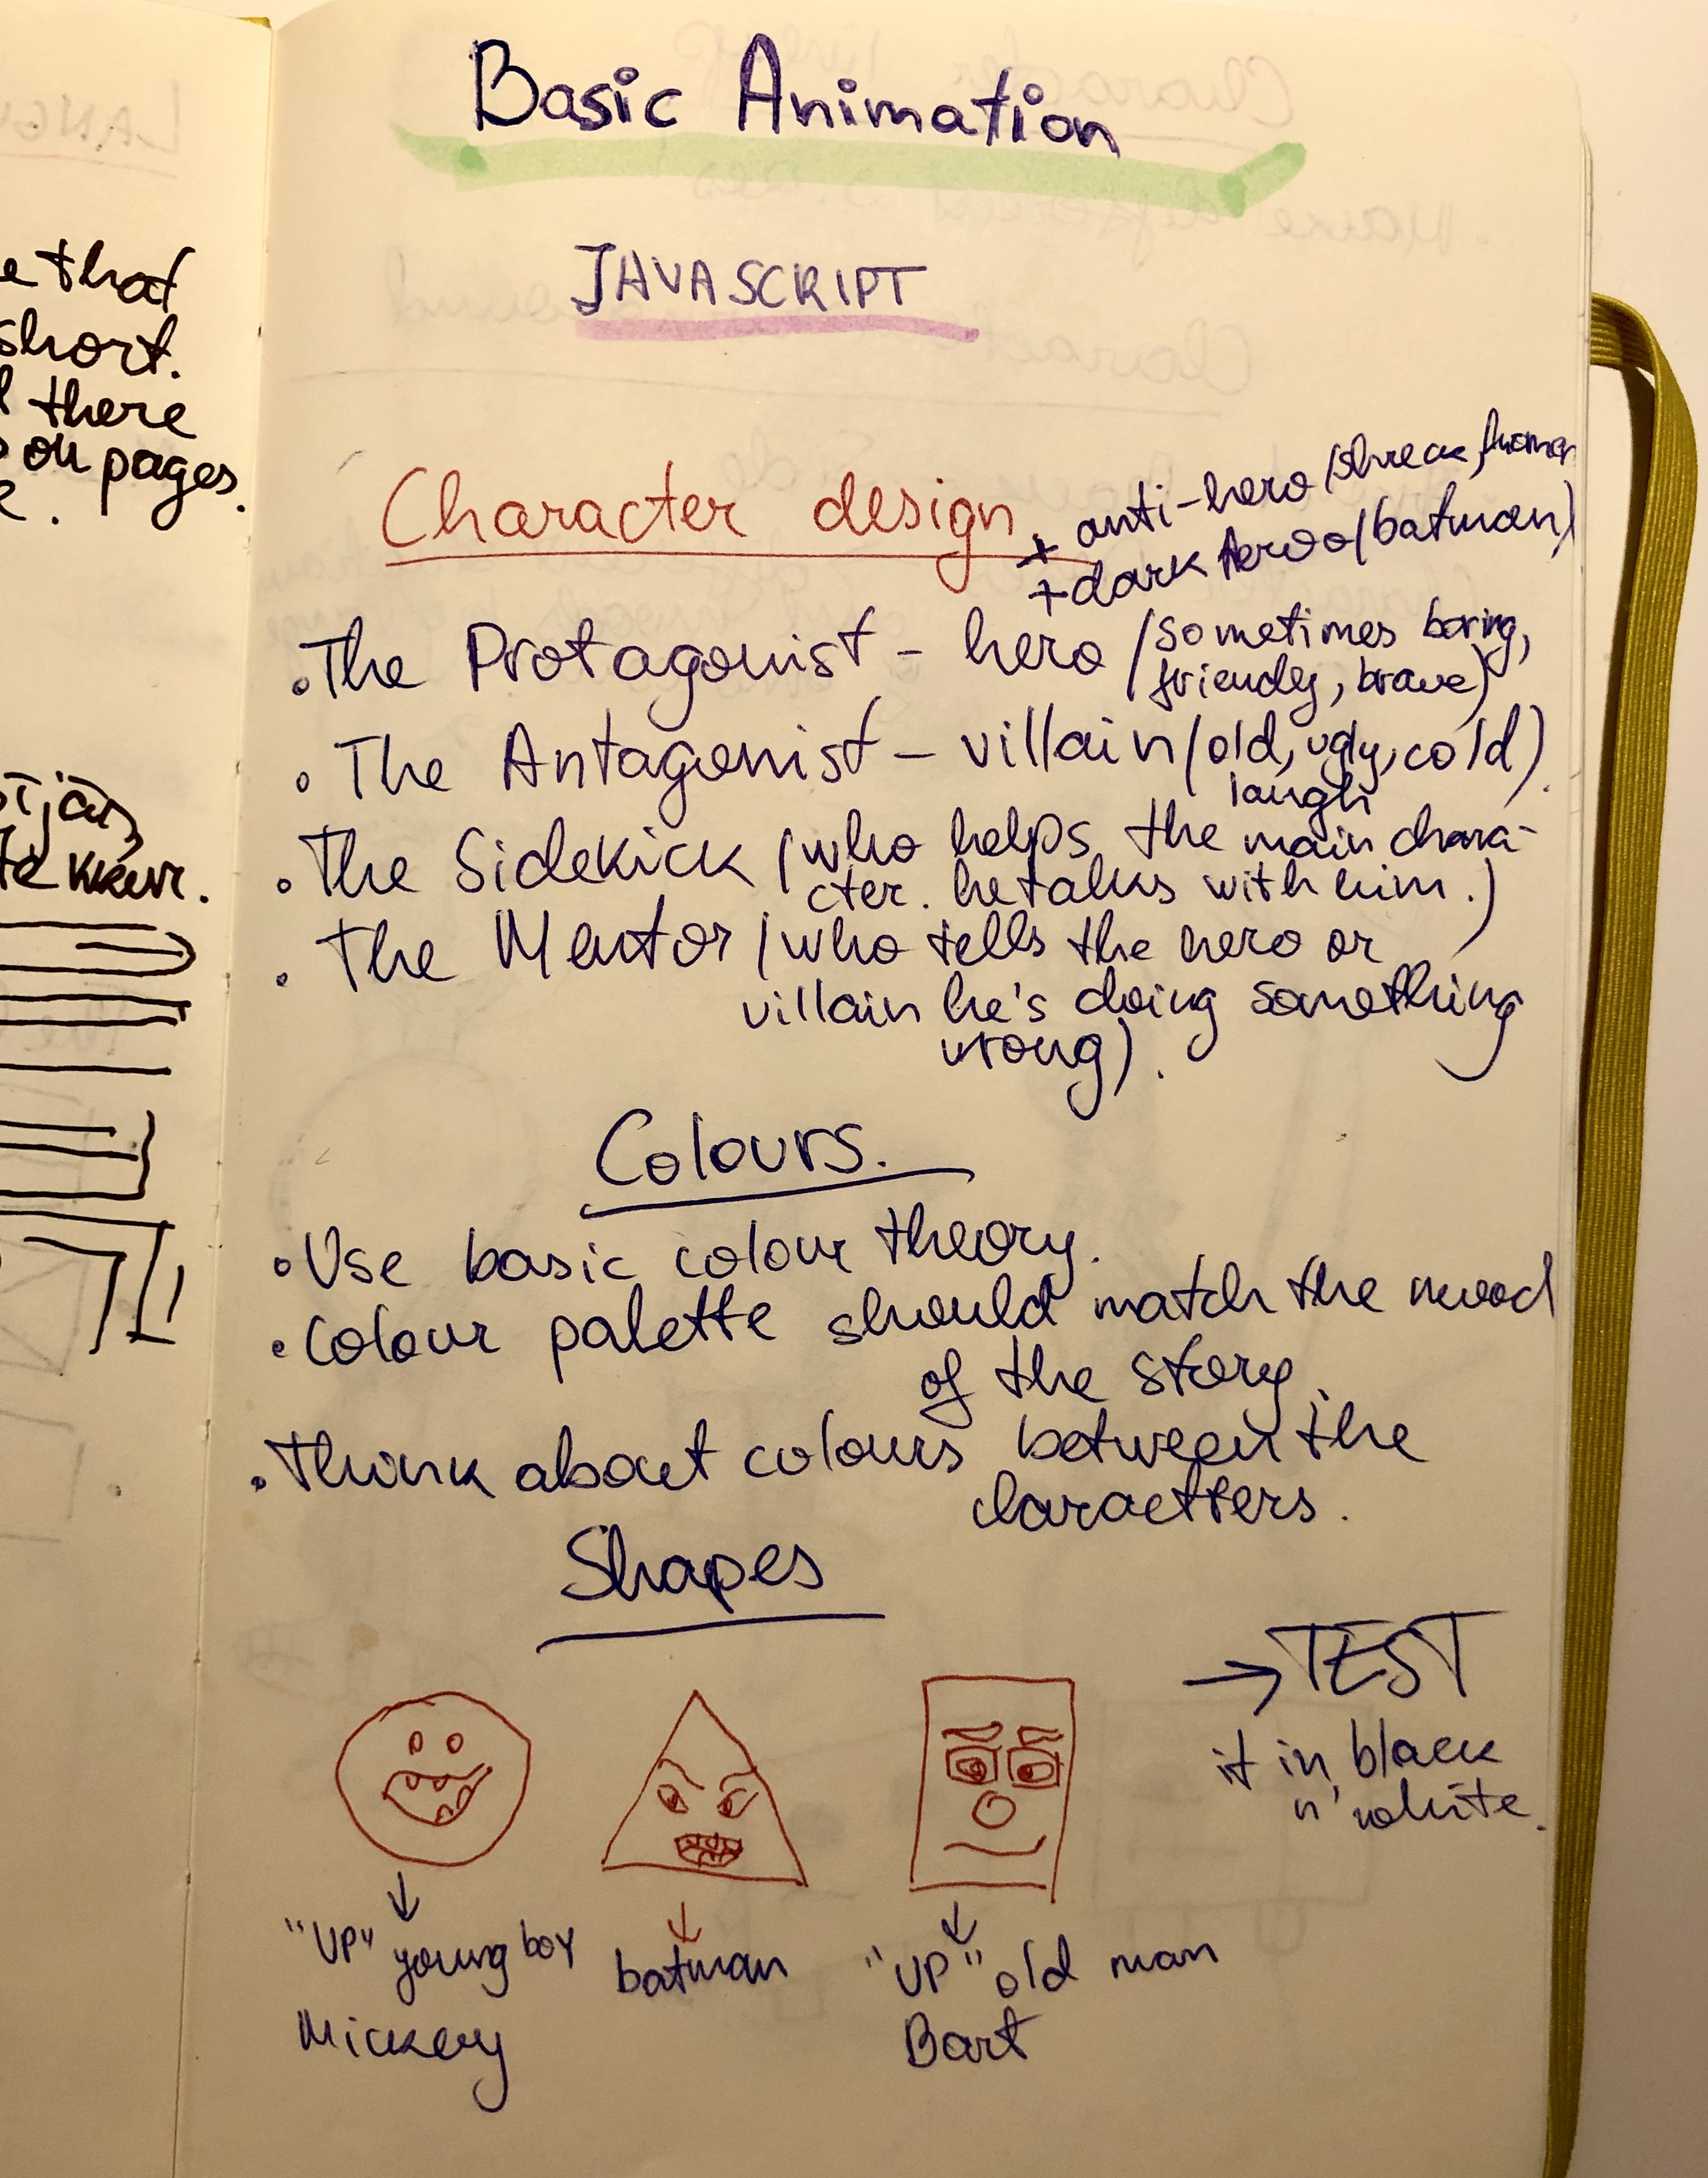 Basic Animation
JAVASCRIPT
Character design
+ anti-hero (shreck,
+ dark heroo (batman)
• The Protagonist - hero (sometimes boring,
friendly, brave)
• The Antagonist - villain (old, ugly, cold).
laugh
• The Sidekick (who helps the main chara-
cter. he talks with him.)
• The Mentor (who tells the hero or
villain he's doing something
wrong).
Colours.
• Use basic colour theory.
• Colour palette should match the mood
of the story.
• Think about colours between the
charactters.
Shapes
→ TEST
it in black
n' white.
"UP" young boy
Mickey
batman
"UP" old man
Bart
e that
short.
there
on pages.